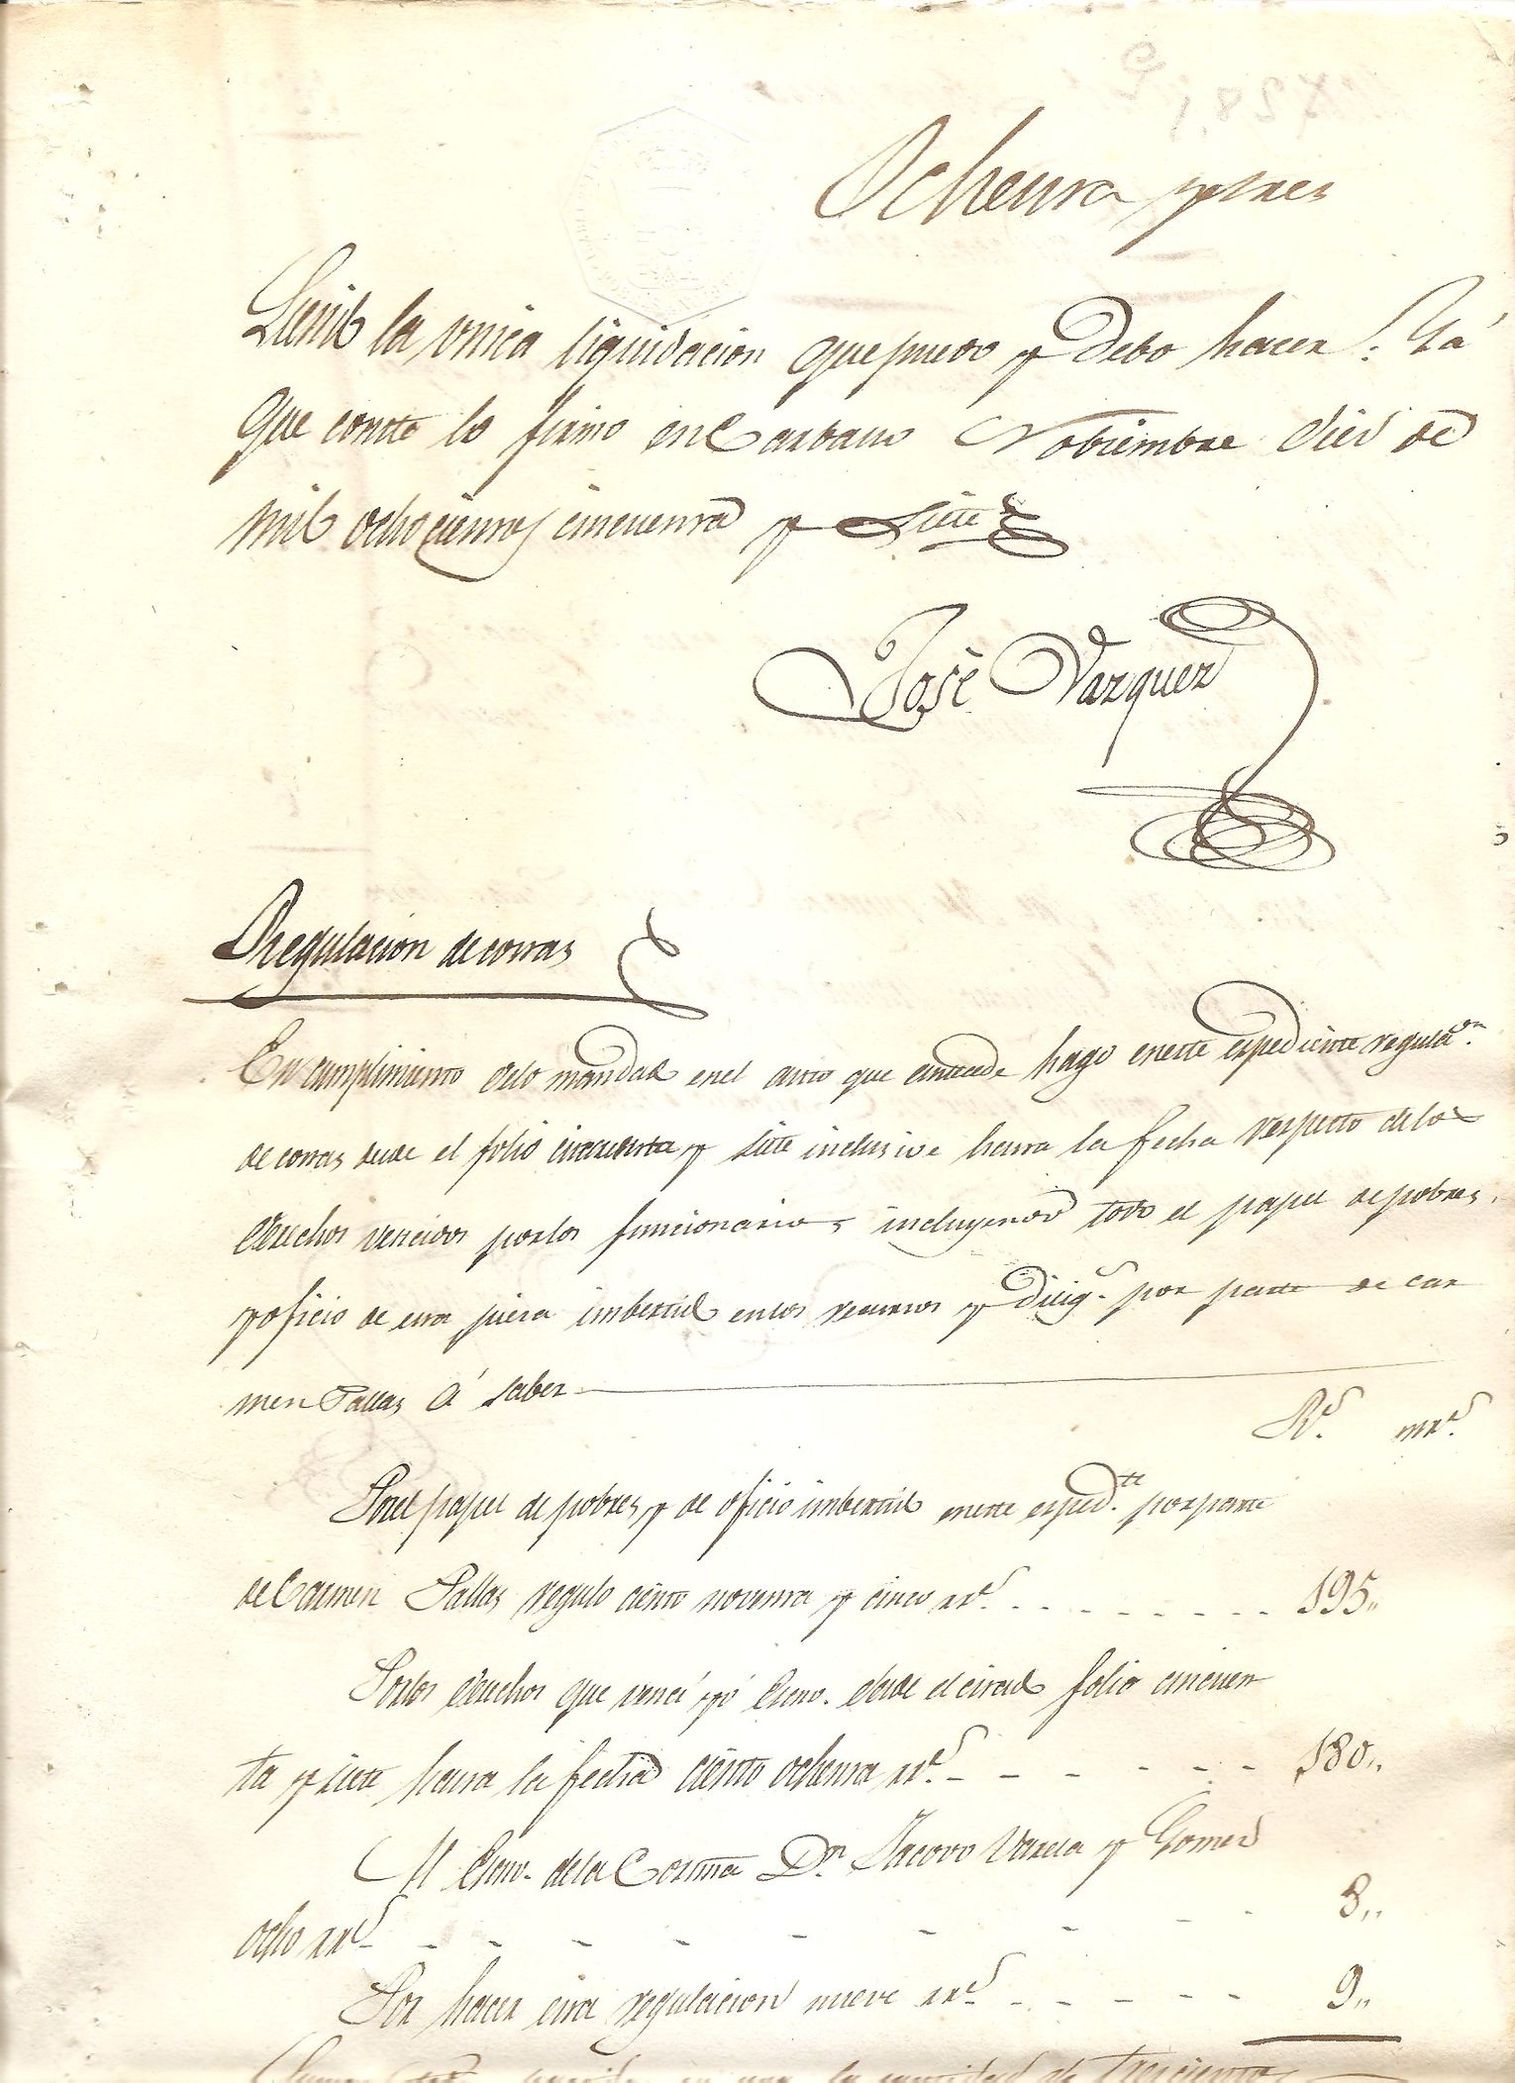 Ochenta y tres
la unica liquidacion que puedo y debo hacer. Y á
que conste lo firmo en Carballo Nobiembre diez de
mil ochocientos cincuenta y siete
José Vazquez
Regulacion de costas
En cumplimiento delo mandado enel auto que antecede hago eneste espediente regulaᵒⁿ.
de costas desde el folio cincuenta y siete inclusive hasta la fecha respecto delos
derechos vencidos porlos funcionarios incluyendo todo el papel de pobres,
y oficio de esta pieza imbertido enlos recursos y diligˢ. por parte de Car
men Pallas á saber
Rˢ. mrˢ.
Porel papel de pobres y de oficio imbertido eneste espedᵗᵉ. por parte
de Carmen Pallas regulo ciento noventa y cinco rrˢ. 195,,
Porlos derechos que vencí yó Escno. desde el citado folio cincuen
ta y siete hasta la fecha ciento ochenta rrˢ. 180,,
Al Escno. dela Coruña Dⁿ. Jacovo Varela y Gomez
ocho rrˢ 8,,
Por hacer esta regulacion nueve rrˢ 9,,
en una la cantidad de trescientos